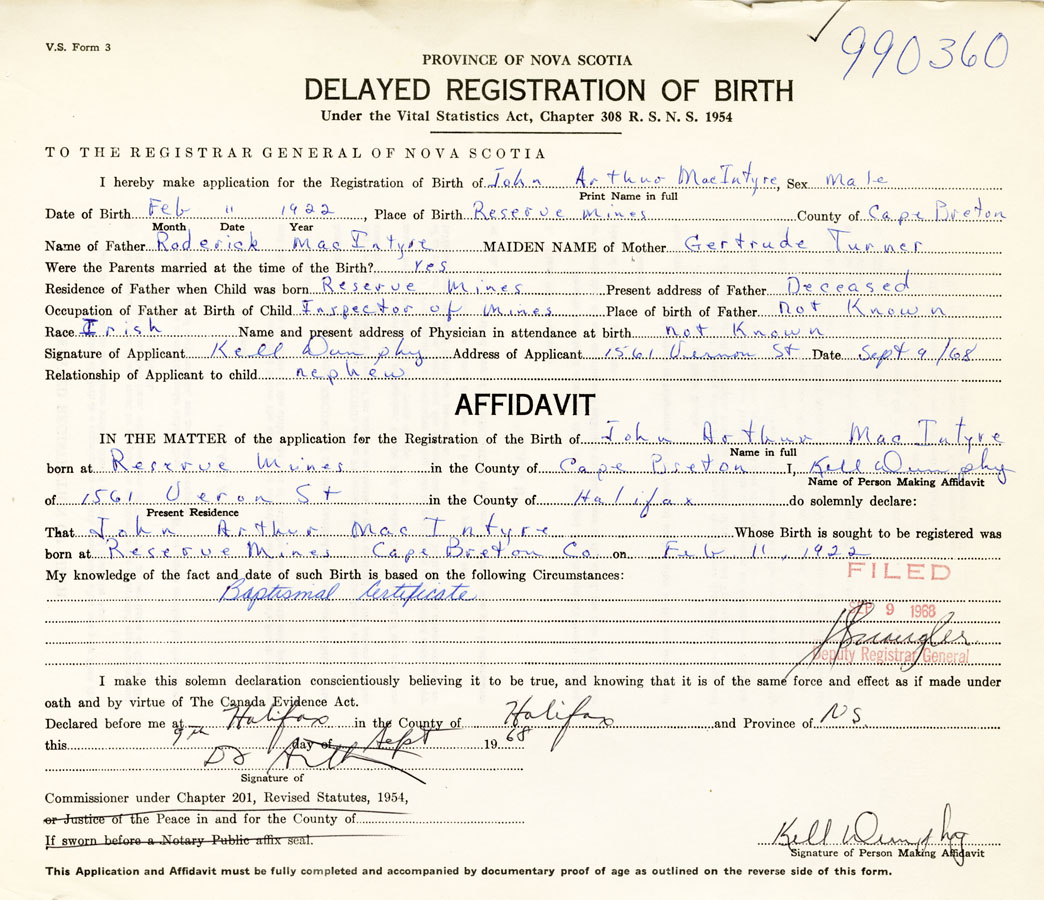 V.S. Form 3
990360
PROVINCE OF NOVA SCOTIA
DELAYED REGISTRATION OF BIRTH
Under the Vital Statistics Act, Chapter 308 R. S. N. S. 1954
TO THE REGISTRAR GENERAL OF NOVA SCOTIA
I hereby make application for the Registration of Birth of John Arthur MacIntyre, Sex Male
Print Name in full
Date of Birth Feb 11 1922, Place of Birth Reserve Mines County of Cape Breton
Month Date Year
Name of Father Roderick MacIntyre MAIDEN NAME of Mother Gertrude Turner
Were the Parents married at the time of the Birth? Yes
Residence of Father when Child was born Reserve Mines Present address of Father Deceased
Occupation of Father at Birth of Child Inspector of Mines Place of birth of Father Not Known
Race Irish Name and present address of Physician in attendance at birth not Known
Signature of Applicant Kell Dumphy Address of Applicant 1561 Vernon St Date Sept 9/68
Relationship of Applicant to child nephew
AFFIDAVIT
IN THE MATTER of the application for the Registration of the Birth of John Arthur MacIntyre
Name in full
born at Reserve Mines in the County of Cape Breton I, Kell Dumphy
Name of Person Making Affidavit
of 1561 Veron St in the County of Halifax do solemnly declare:
Present Residence
That John Arthur MacIntyre Whose Birth is sought to be registered was
born at Reserve Mines Cape Breton Co on Feb 11, 1922
My knowledge of the fact and date of such Birth is based on the following Circumstances:
FILED
Baptismal Certificate
SEP 9 1968
Deputy Registrar General
I make this solemn declaration conscientiously believing it to be true, and knowing that it is of the same force and effect as if made under
oath and by virtue of The Canada Evidence Act.
Declared before me at Halifax in the County of Halifax and Province of NS
this 9th day of Sept 1968
Signature of
Commissioner under Chapter 201, Revised Statutes, 1954,
or Justice of the Peace in and for the County of
If sworn before a Notary Public affix seal.
Kell Dumphy
Signature of Person Making Affidavit
This Application and Affidavit must be fully completed and accompanied by documentary proof of age as outlined on the reverse side of this form.